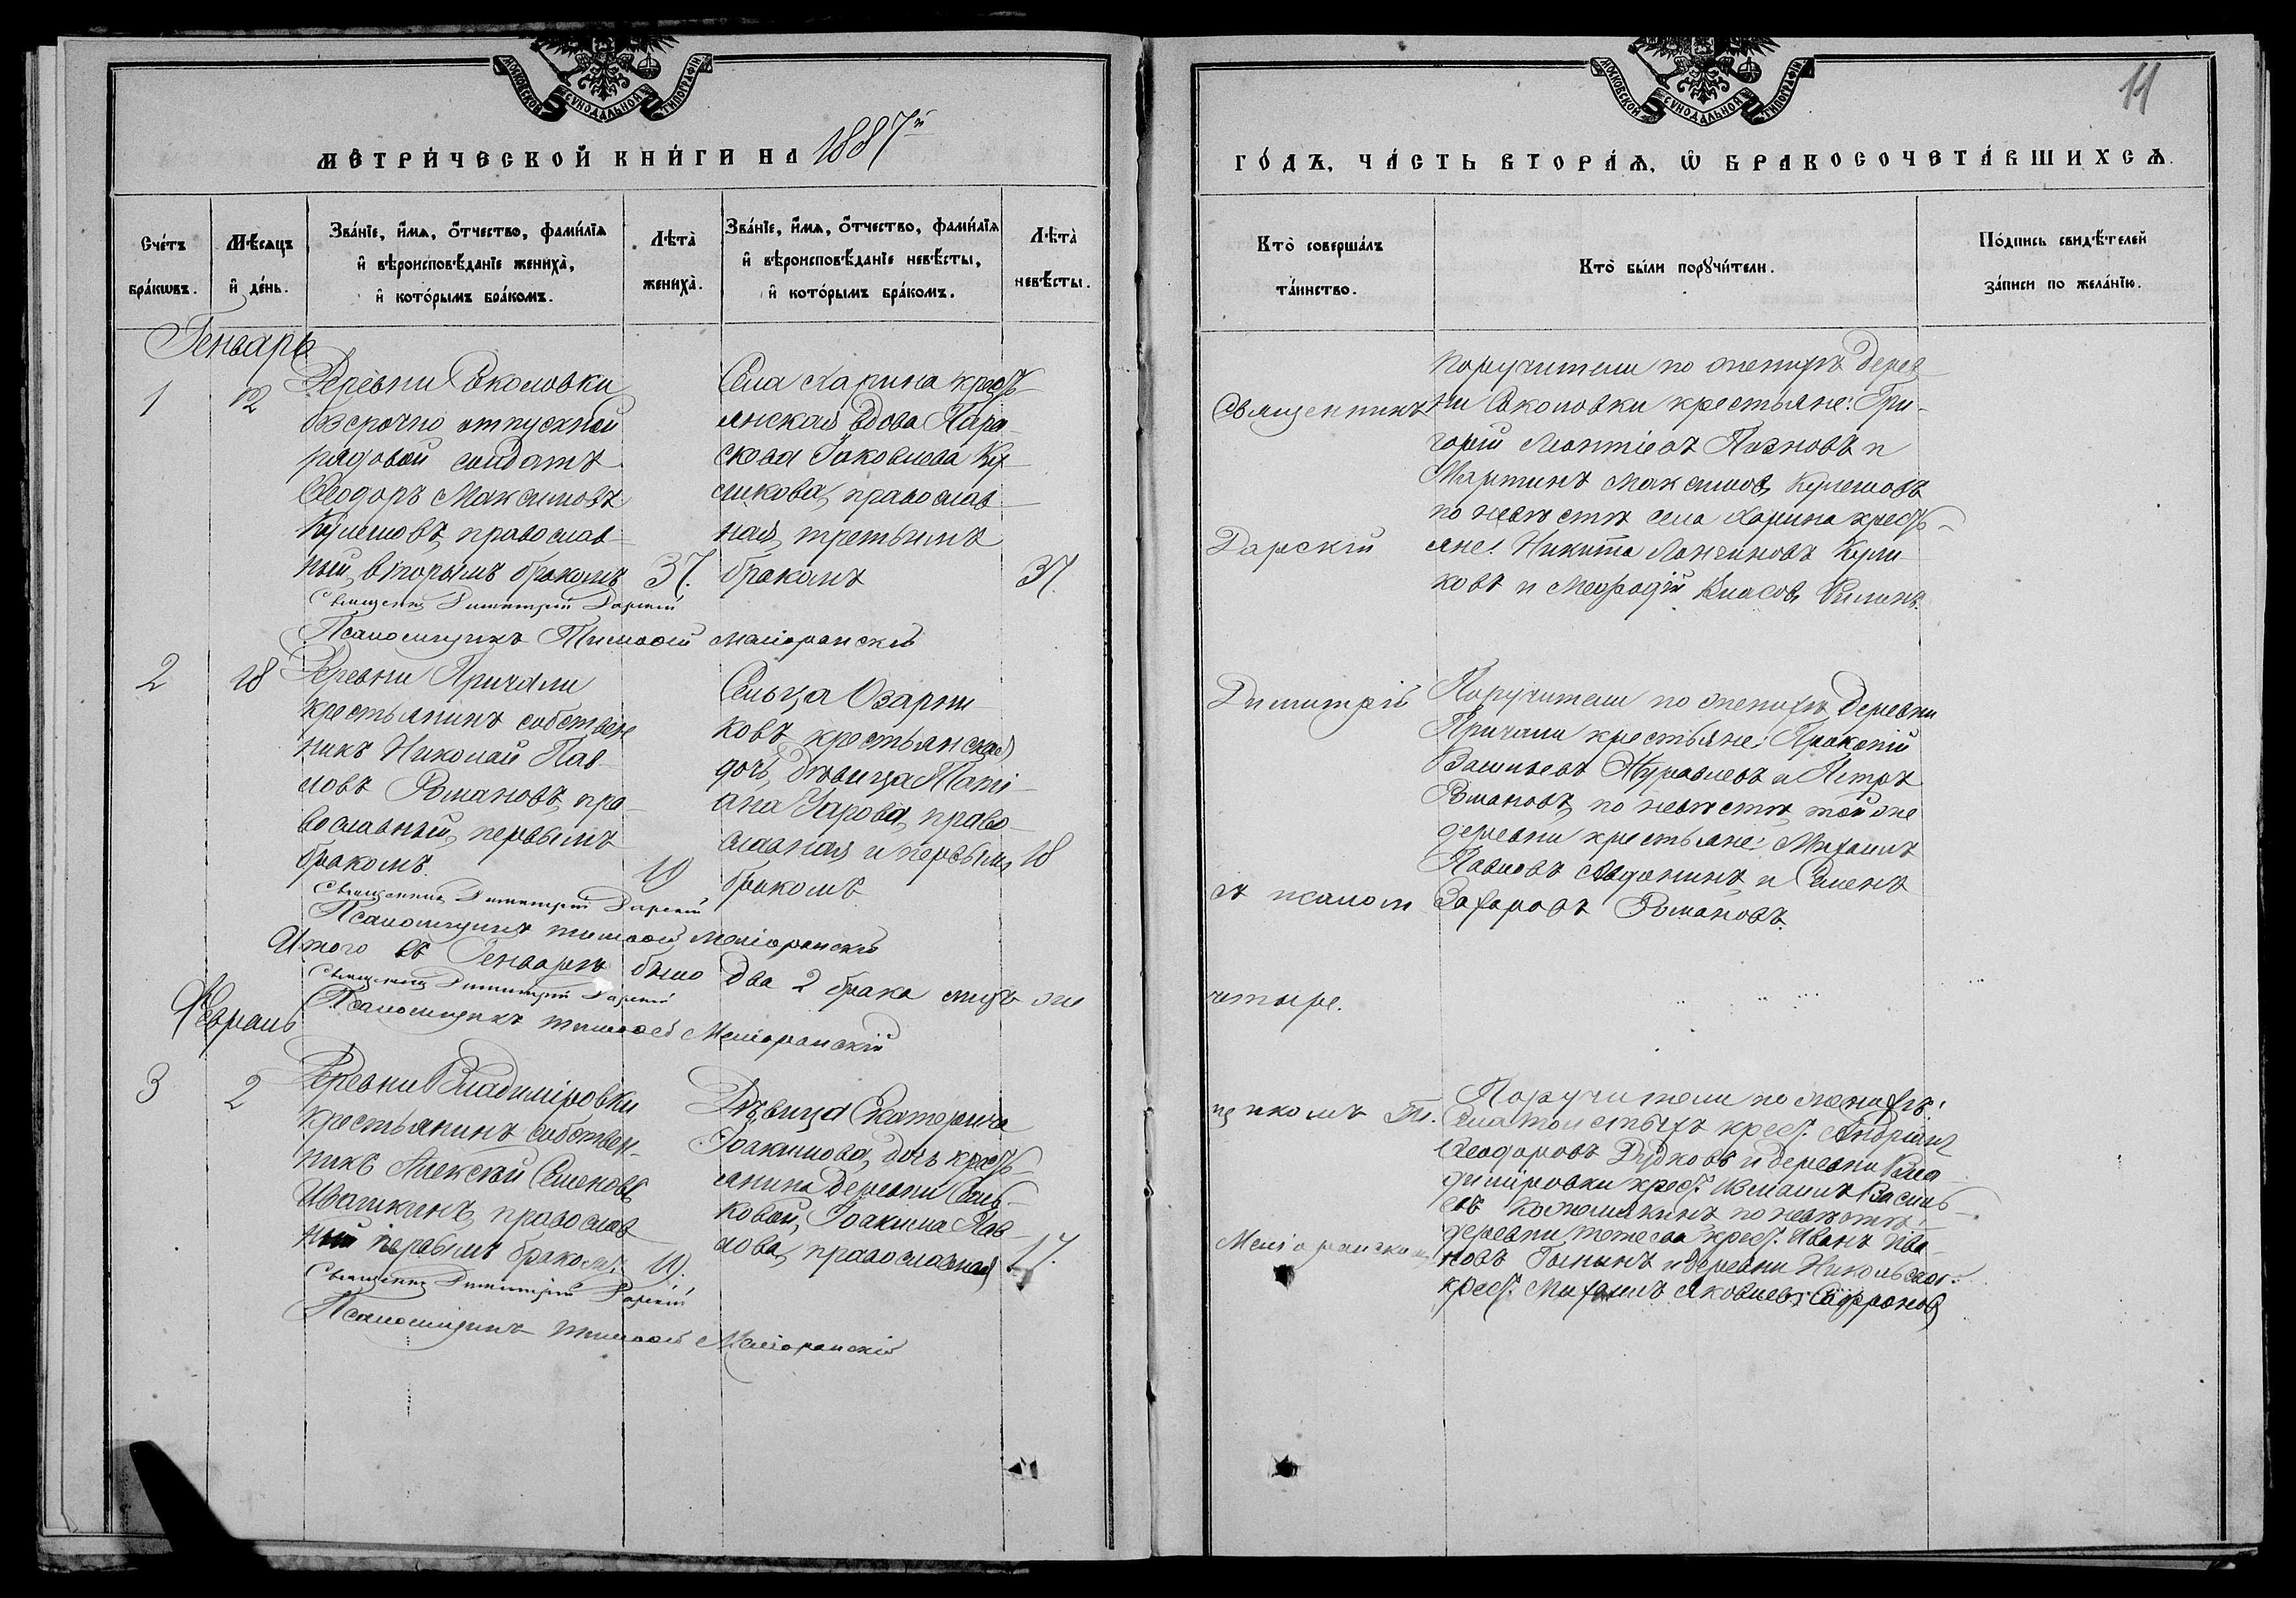 МОСКОВСКОЙ СѴНОДАЛЬНОЙ ТИПОГРАФІИ
МЕТРИ́ЧЕСКОЙ КНИ́ГИ НА 1887й
Сче́тъ бра́кѡвъ.
Мѣ́сѧцъ и҆ де́нь.
Зва́нїе, и҆́мѧ, ѻ҆́тчество, фами́лїѧ и҆ вѣроисповѣ́данїе жениха̀, и҆ кото́рымъ бра́комъ.
Лѣта̀ жениха̀.
Зва́нїе, и҆́мѧ, ѻ҆́тчество, фами́лїѧ и҆ вѣроисповѣ́данїе невѣ́сты, и҆ кото́рымъ бра́комъ.
Лѣта̀ невѣ́сты.
Генварь
1
12
Деревни Соколовки
безсрочно отпускной
рядовой солдатъ
Ѳеодоръ Максимовъ
Кулешовъ, православ
ный, вторымъ бракомъ
37.
Села Ларина крест
янская вдова Пара
скева Іаковлева Ку
ликова, православ
ная, третьимъ
бракомъ
37.
Священникъ Димитрій Дарскій
Псаломщикъ Тимоѳей Меліоранскій
2
18
Деревни Причали
крестьянинъ собствен
никъ Николай Пав
ловъ Романовъ, пра
вославный, первымъ
бракомъ.
19
Сельца Озарни
ковъ крестьянская
дочь, дѣвица Таті
ана Уарова, право
славная и первымъ
бракомъ.
18
Священникъ Димитрій Дарскій
Псаломщикъ Тимоѳей Меліоранскій
Итого въ Генварѣ было два 2 брака лицъ же
Священникъ Димитрій Дарскій
Псаломщикъ Тимоѳей Меліоранскій
Февраль
3
2
Деревни Владиміровки
крестьянинъ собствен
никъ Алексѣй Семеновъ
Ивашкинъ, православ
ный первымъ бракомъ.
19.
Дѣвица Екатерина
Іоакимова, дочь крест
янина деревни Сель
ковой, Іоакима Пав
лова, православная
17.
Священникъ Димитрій Дарскій
Псаломщикъ Тимоѳей Меліоранскій
11
МОСКОВСКОЙ СѴНОДАЛЬНОЙ ТИПОГРАФІИ
ГО́ДЪ, ЧА́СТЬ ВТОРА́Ѧ, Ѡ҆ БРАКОСОЧЕТА́ВШИХСѦ.
Кто̀ соверша́лъ та́инство.
Кто̀ бы́ли порꙋчи́тели.
По́дпись свидѣ́телей за́писи по жела́нїю.
Священникъ
Дарскій
Димитрій
съ псалом
четыре.
щикомъ Т.
Меліоранским
Поручители по женихѣ дерев
ни Соколовки крестьяне: Гри
горій Леонтіевъ Позновъ и
Мартинъ Максимовъ Кулешовъ
по невѣстѣ села Ларина крест
яне: Никита Логгиновъ Кули
ковъ и Меѳодій Власовъ Филинъ.
Поручители по женихѣ деревни
Причали крестьяне: Прокопій
Васильевъ Журавлевъ и Петръ
Романовъ, по невѣстѣ той же
деревни крестьяне: Михаилъ
Павловъ Авдонинъ и Семенъ
Захаровъ Романовъ.
Поручители по женихѣ:
крест. Андріанъ
Ѳеодоровъ Дудковъ и деревни Вла
диміровки крест. Измаилъ Василь
евъ по невѣстѣ
деревни крест. Иванъ Ива
новъ и деревни Никольской
крест. Михаилъ Яковлевъ Сафроновъ